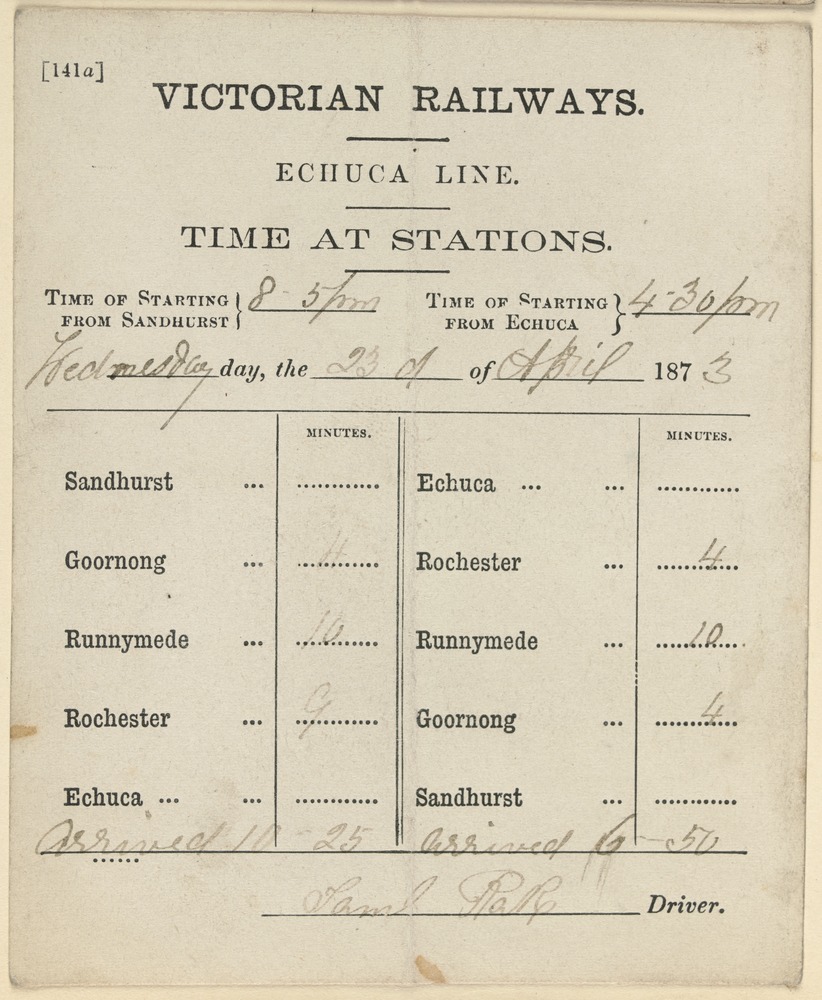 [141a]
VICTORIAN RAILWAYS.
ECHUCA LINE.
TIME AT STATIONS.
TIME OF STARTING FROM SANDHURST } 8-5 pm TIME OF STARTING FROM ECHUCA } 4-30 pm
Wednesday day, the 23 d of April 1873
MINUTES. MINUTES.
Sandhurst ... ............ Echuca ... ... ............
Goornong ... 4 Rochester ... 4
Runnymede ... 10 Runnymede ... 10
Rochester ... 9 Goornong ... 4
Echuca ... ... ............ Sandhurst ... ............
Arrived 10-25 Arrived 6-50
Saml Driver.